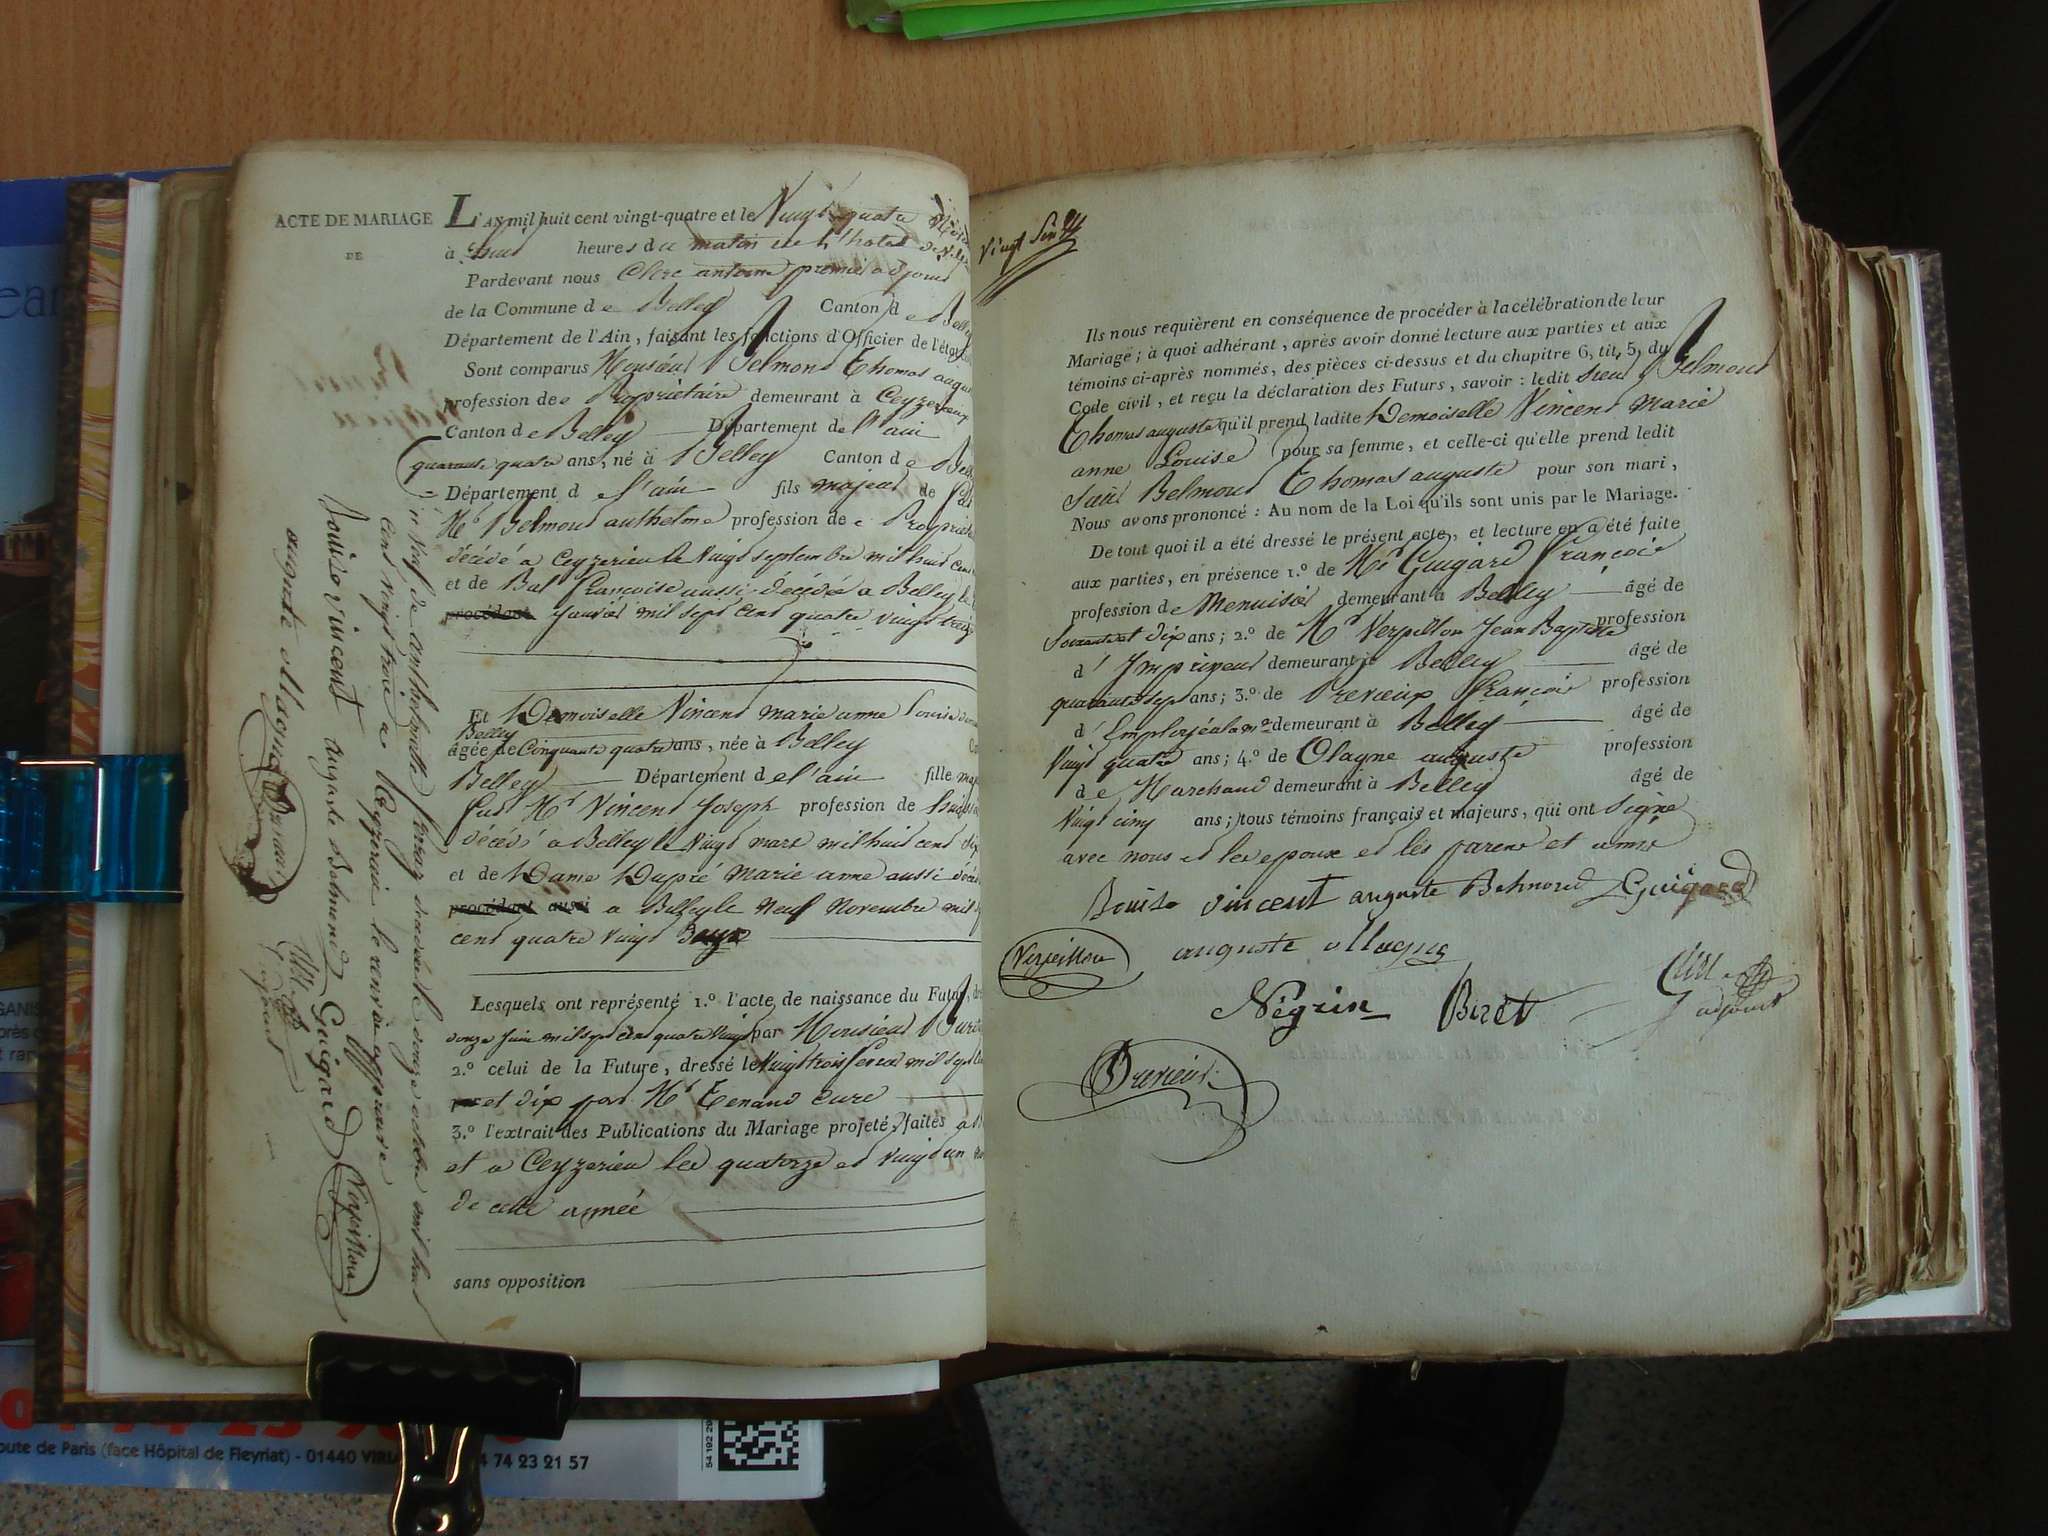 ACTE DE MARIAGE
DE
L'AN mil huit cent vingt-quatre et le Vingt quatre
à huit heures du matin en l'hotel de
Pardevant nous Clerc antoine premier adjoint
de la Commune de Belley Canton de Belley
Département de l'Ain, faisant les fonctions d'Officier de l'état
Sont comparus Monsieur Belmond Thomas
profession de Propriétaire demeurant à Ceyzerieux
Canton de Belley Département de l'ain
quarante quatre ans, né à Belley Canton de
Département de l'ain fils majeur de
Mr Belmond anthelme profession de
décédé a Ceyzerieu le Vingt septembre mil huit cent
et de Bal françoise aussi décédée a Belley
procédant janvier mil sept cent quatre vingt treize
Et Demoiselle Vincent marie anne Louise
Belley
âgée de Cinquante quatre ans, née à Belley
Belley Département de l'ain fille
feu Mr Vincent Joseph profession de
décédé a Belley le Vingt mars mil huit cent
et de Dame Dupré Marie anne aussi
procédant aussi a Belley le neuf Novembre mil
cent quatre vingt
Lesquels ont représenté 1.º l'acte de naissance du Futur,
onze juin mil sept cent quatre vingt par Monsieur
2.º celui de la Future, dressé le vingt trois mil sept
et dix par Mr Tenand curé
3.º l'extrait des Publications du Mariage projeté, faites a
et a Ceyzerieu les quatorze et vingt un
de cette année
sans opposition
n neuf de anthelmette
cent vingt trois a Ceyzerieu
Louise Vincent auguste Belmond Guigard Verpillon
auguste ollagne
adjoint
Vingt Six
Ils nous requièrent en conséquence de procéder à la célébration de leur
Mariage; à quoi adhérant, après avoir donné lecture aux parties et aux
témoins ci-après nommés, des pièces ci-dessus et du chapitre 6, tit. 5, du
Code civil, et reçu la déclaration des Futurs, savoir: ledit Sieur Belmond
Thomas auguste qu'il prend ladite Demoiselle Vincent marie
anne Louise pour sa femme, et celle-ci qu'elle prend ledit
Sieur Belmond Thomas auguste pour son mari,
Nous avons prononcé: Au nom de la Loi qu'ils sont unis par le Mariage.
De tout quoi il a été dressé le présent acte, et lecture en a été faite
aux parties, en présence 1.º de Mr Guigard françois
profession de Menuisier demeurant à Belley âgé de
Soixante et dix ans; 2.º de Mr Verpillon Jean Baptiste profession
d'Imprimeur demeurant à Belley âgé de
quarante sept ans; 3.º de Previeux françois profession
d'Employé a la demeurant à Belley âgé de
vingt quatre ans; 4.º de Olagne auguste profession
de Marchand demeurant à Belley âgé de
Vingt cinq ans; tous témoins français et majeurs, qui ont signé
avec nous et les epoux et les parens et amis
Louise vincent auguste Belmond Guigard
Verpillon auguste ollagne
Négrin Biret adjoint
Previeux
oute de Paris (face Hôpital de Fleyriat) - 01440
4 74 23 21 57